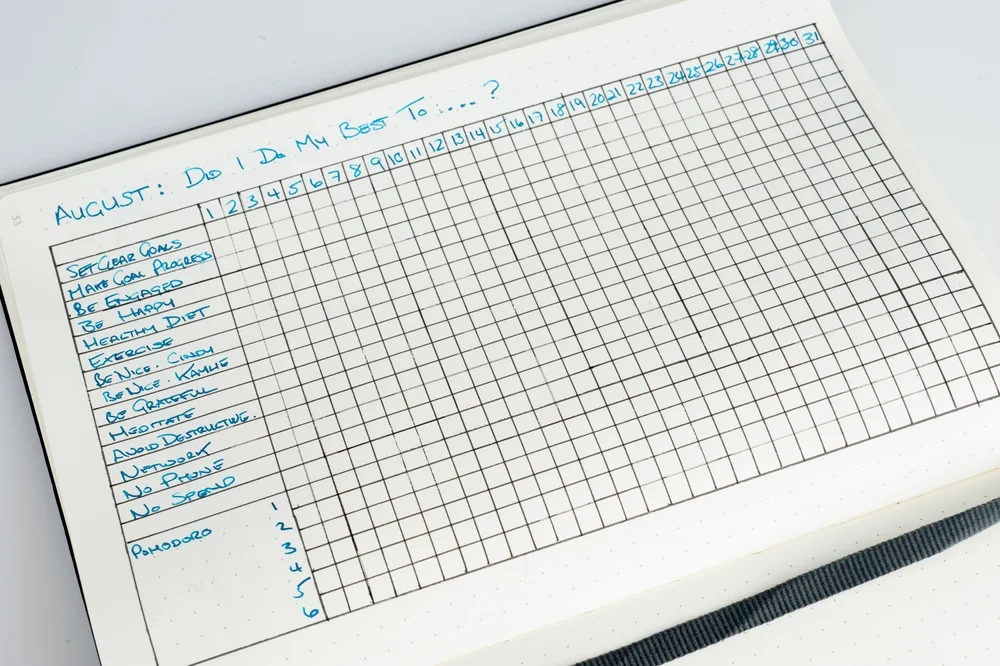 AUGUST: DID I DO MY BEST TO :....?
1 2 3 4 5 6 7 8 9 10 11 12 13 14 15 16 17 18 19 20 21 22 23 24 25 26 27 28 29 30 31
SET CLEAR GOALS
MAKE GOAL PROGRESS
BE ENGAGED
BE HAPPY
HEALTHY DIET
EXERCISE
BE NICE. CINDY
BE NICE. KAYLIE
BE GRATEFUL
MEDITATE
AVOID DESTRUCTIVE.
NETWORK
NO PHONE
NO SPEND
POMODORO 1
2
3
4
5
6